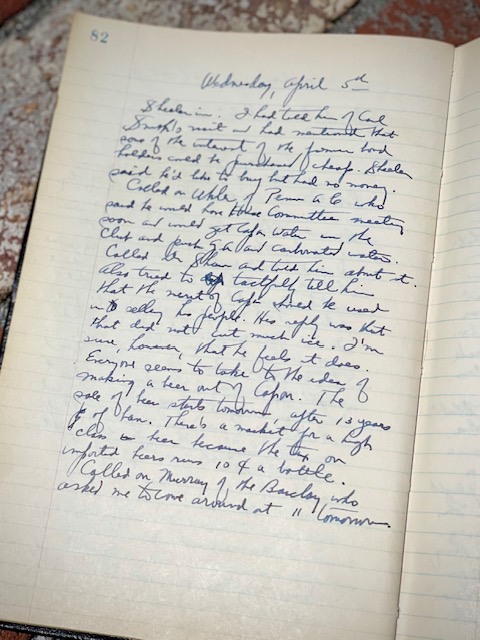 82
Wednesday, April 5th
Sheeler in. I had told him of Carl
visit and had mentioned that
some of the interest of the former bond
holders could be purchased cheap. Sheeler
said he'd like to buy but had no money.
Called on White of Penn A C who
said he would have House Committee meeting
soon and would get Capon Water in the
Club and push G A and carbonated water.
Called in and told him about it.
Also tried to tactfully tell him
that the merit of Capon should be used
in selling his people. His reply was that
that did not cut much ice. I'm
sure, however, that he feels it does.
Everyone seems to take to the idea of
making a beer out of Capon. The
sale of beer starts tomorrow after 13 years
of ban. There's a market for a high
class beer because the tax on
imported beers runs 10¢ a bottle.
Called on Murray of the Barclay who
asked me to come around at 11 tomorrow.